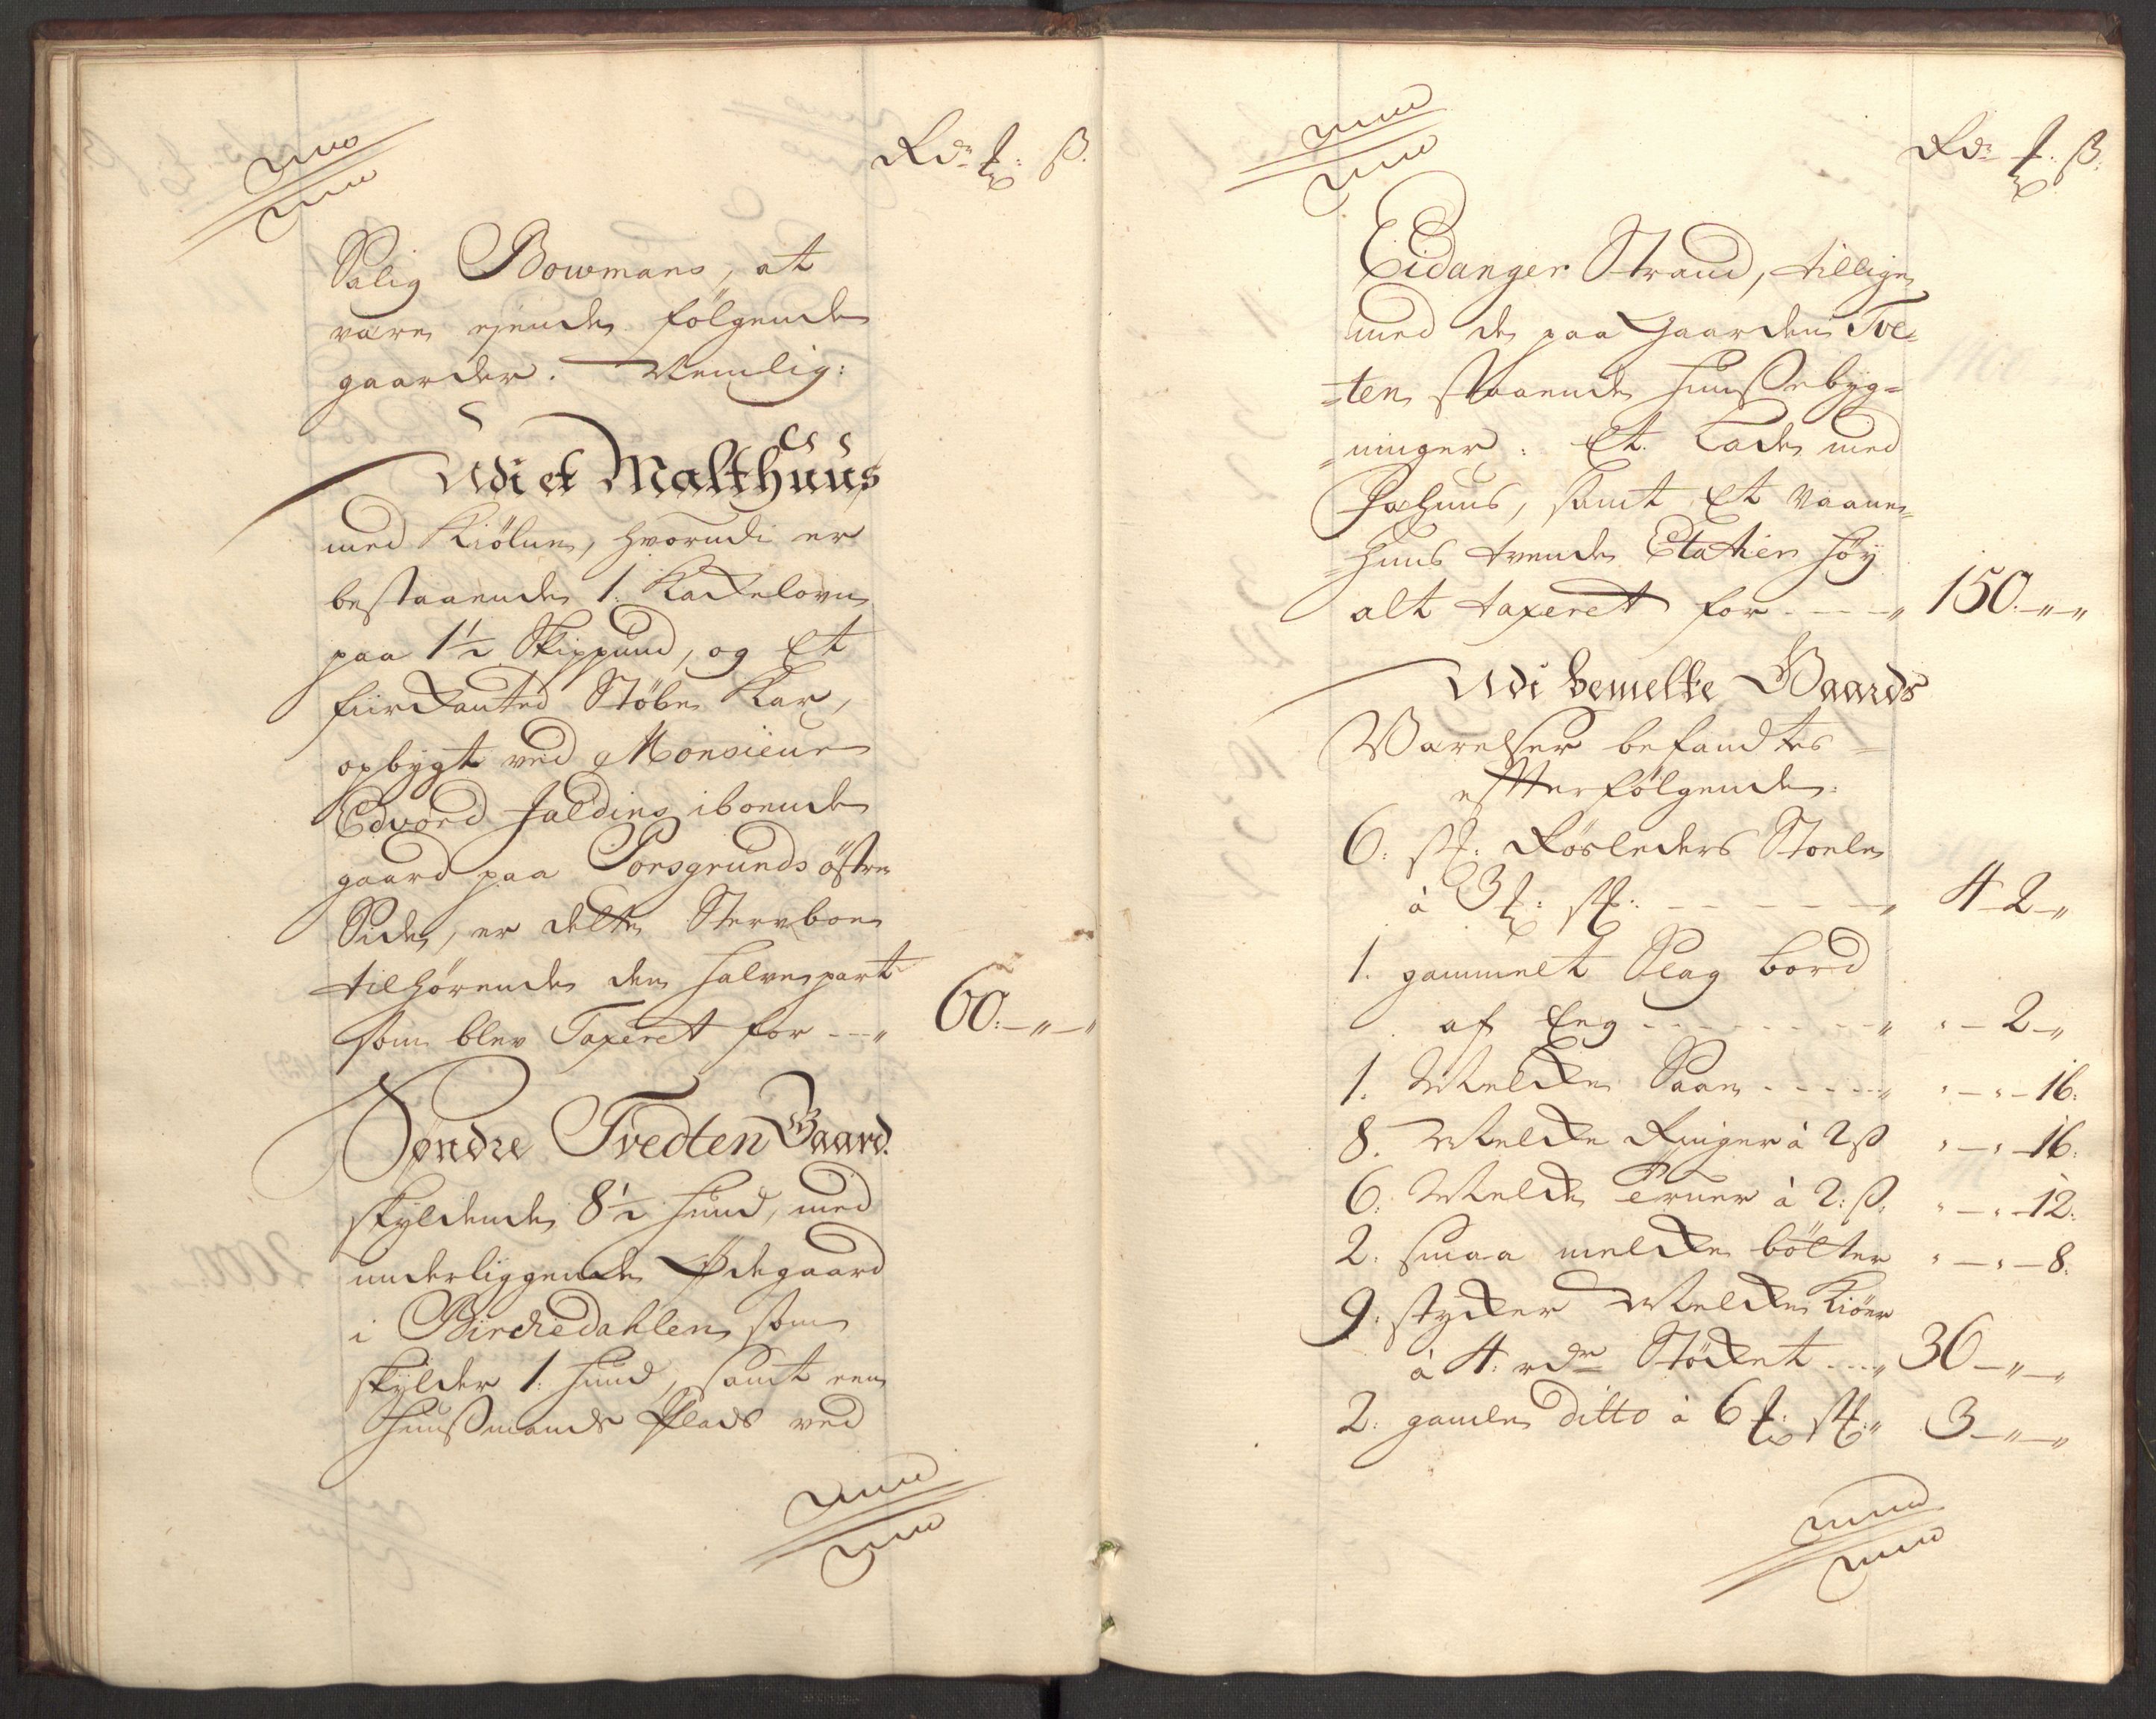 Rdr ℔: ß.
Salig Bowmans, at
være eiende følgende
gaarder. Nemlig:
Udi et Malthuus
med Kiølne, hvorudi er
bestaaende 1. Kackelovn
paa 1½ Skippund, og Et
fiirkanted Støbe Kar,
opbygt ved Monsieur
Edvard Faldings iboende
gaard paa Porsgrunds østre
Side, er dette Stervboe
tilhørende den halve part
som blev Taxeret for --- 60:-"-"
Søndre Tvedten Gaard.
skyldende 8½ Huud, med
underliggende Ødegaard
i Birchedahlen som
skylder 1. Huud, samt een
Huusmands Plads ved
Rdr ℔: ß.
Eidanger Strand, tillige
med de paa Gaarden Tve-
-ten staaende Huusebyg-
-ninger: Et Lade med
Fæhuus, samt Et Vaane-
-huus tvende Etatier høy
alt taxeret for ---- 150.-"-"
Udi bemelte Gaards
Værelser befandtes
efterfølgende:
6. st: Røsleders Stoele
à 3 ℔: st: ------ 4-2-"
1. gammelt Slag bord
af Eeg ------- " - 2-"
1. Melke Saae ----- " - " - 16:
8. Melke Ringer à 2 ß " - " - 16:
6. Melke à 2: ß: " - " - 12:
2. smaa melke bøtter " - " - 8:
9: stycker Melke Kiøer
à 4: rdr Støcket --- 36-"-"
2: gamle ditto à 6 ℔: st: 3-"-"